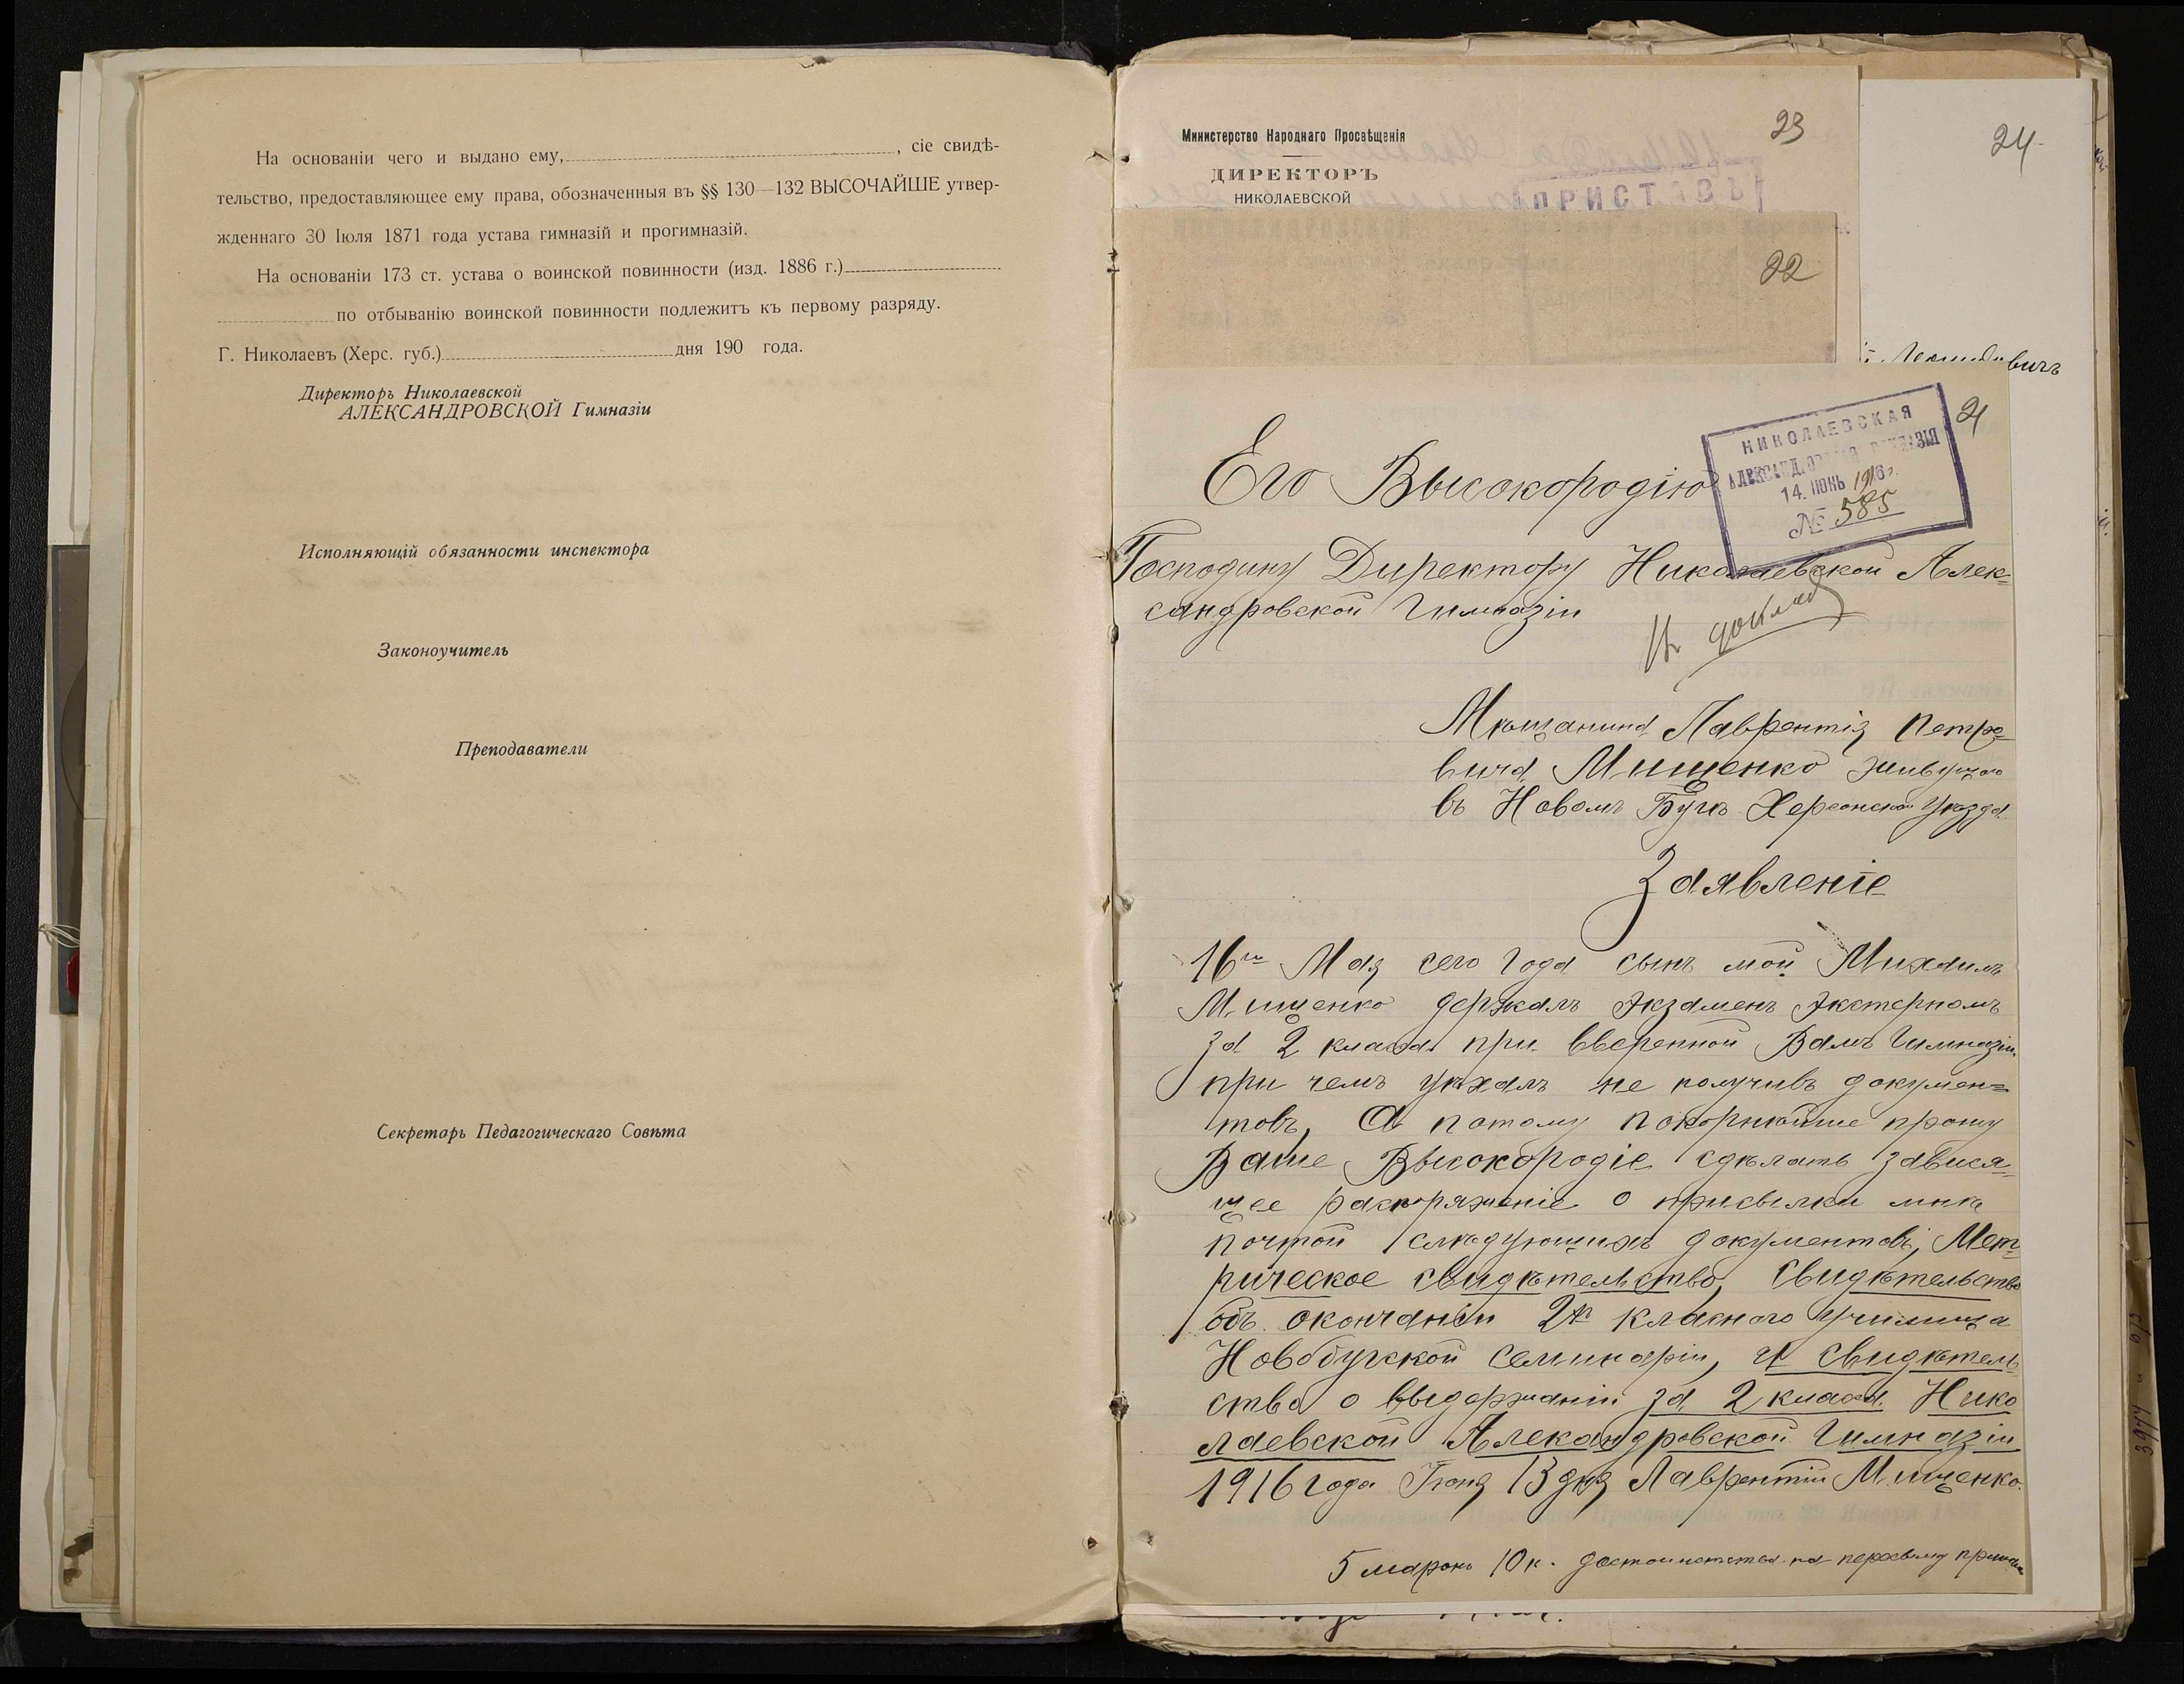 На основаніи чего и выдано ему, , сіе свидѣ-
тельство, предоставляющее ему права, обозначенныя въ §§ 130—132 ВЫСОЧАЙШЕ утвер-
жденнаго 30 Іюля 1871 года устава гимназій и прогимназій.
На основаніи 173 ст. устава о воинской повинности (изд. 1886 г.)
по отбыванію воинской повинности подлежитъ къ первому разряду.
Г. Николаевъ (Херс. губ.) дня 190 года.
Директоръ Николаевской
АЛЕКСАНДРОВСКОЙ Гимназіи
Исполняющій обязанности инспектора
Законоучитель
Преподаватели
Секретарь Педагогическаго Совѣта
Министерство Народнаго Просвѣщенія
23
ДИРЕКТОРЪ
НИКОЛАЕВСКОЙ
ПРИСТАВЪ
24
22
21
НИКОЛАЕВСКАЯ
АЛЕКСАНДРОВСКАЯ ГИМНАЗІЯ
14. ІЮНЬ 1916 г.
№ 585
Его Высокородію
Господину Директору Николаевской Алек-
сандровской Гимназіи
Къ докладу
Мѣщанина Лаврентія Петро-
вича Мищенко живущаго
въ Новомъ Бугѣ Херсонскаго уѣзда
Заявленіе
16го Мая сего года сынъ мой Михаилъ
Мищенко держалъ экзаменъ экстерномъ
за 2 класса при вверенной Вамъ Гимназіи.
при чемъ уѣхалъ не получивъ докумен=
товъ, А потому покорнѣйше прошу
Ваше Высокородіе сдѣлать завися-
щее распоряженіе о присылки мнѣ
почтой слѣдующихъ документовъ, Мет-
рическое свидѣтельство, Свидѣтельство
объ окончаніи 2х класнаго училища
Новобугской семинаріи, и свидѣтель
ства о выдержаніи за 2 класса Нико
лаевской Александровской Гимназіи
1916 года Іюня 13 дня Лаврентій Мищенко.
5 марокъ 10 к. достоинства на пересылку